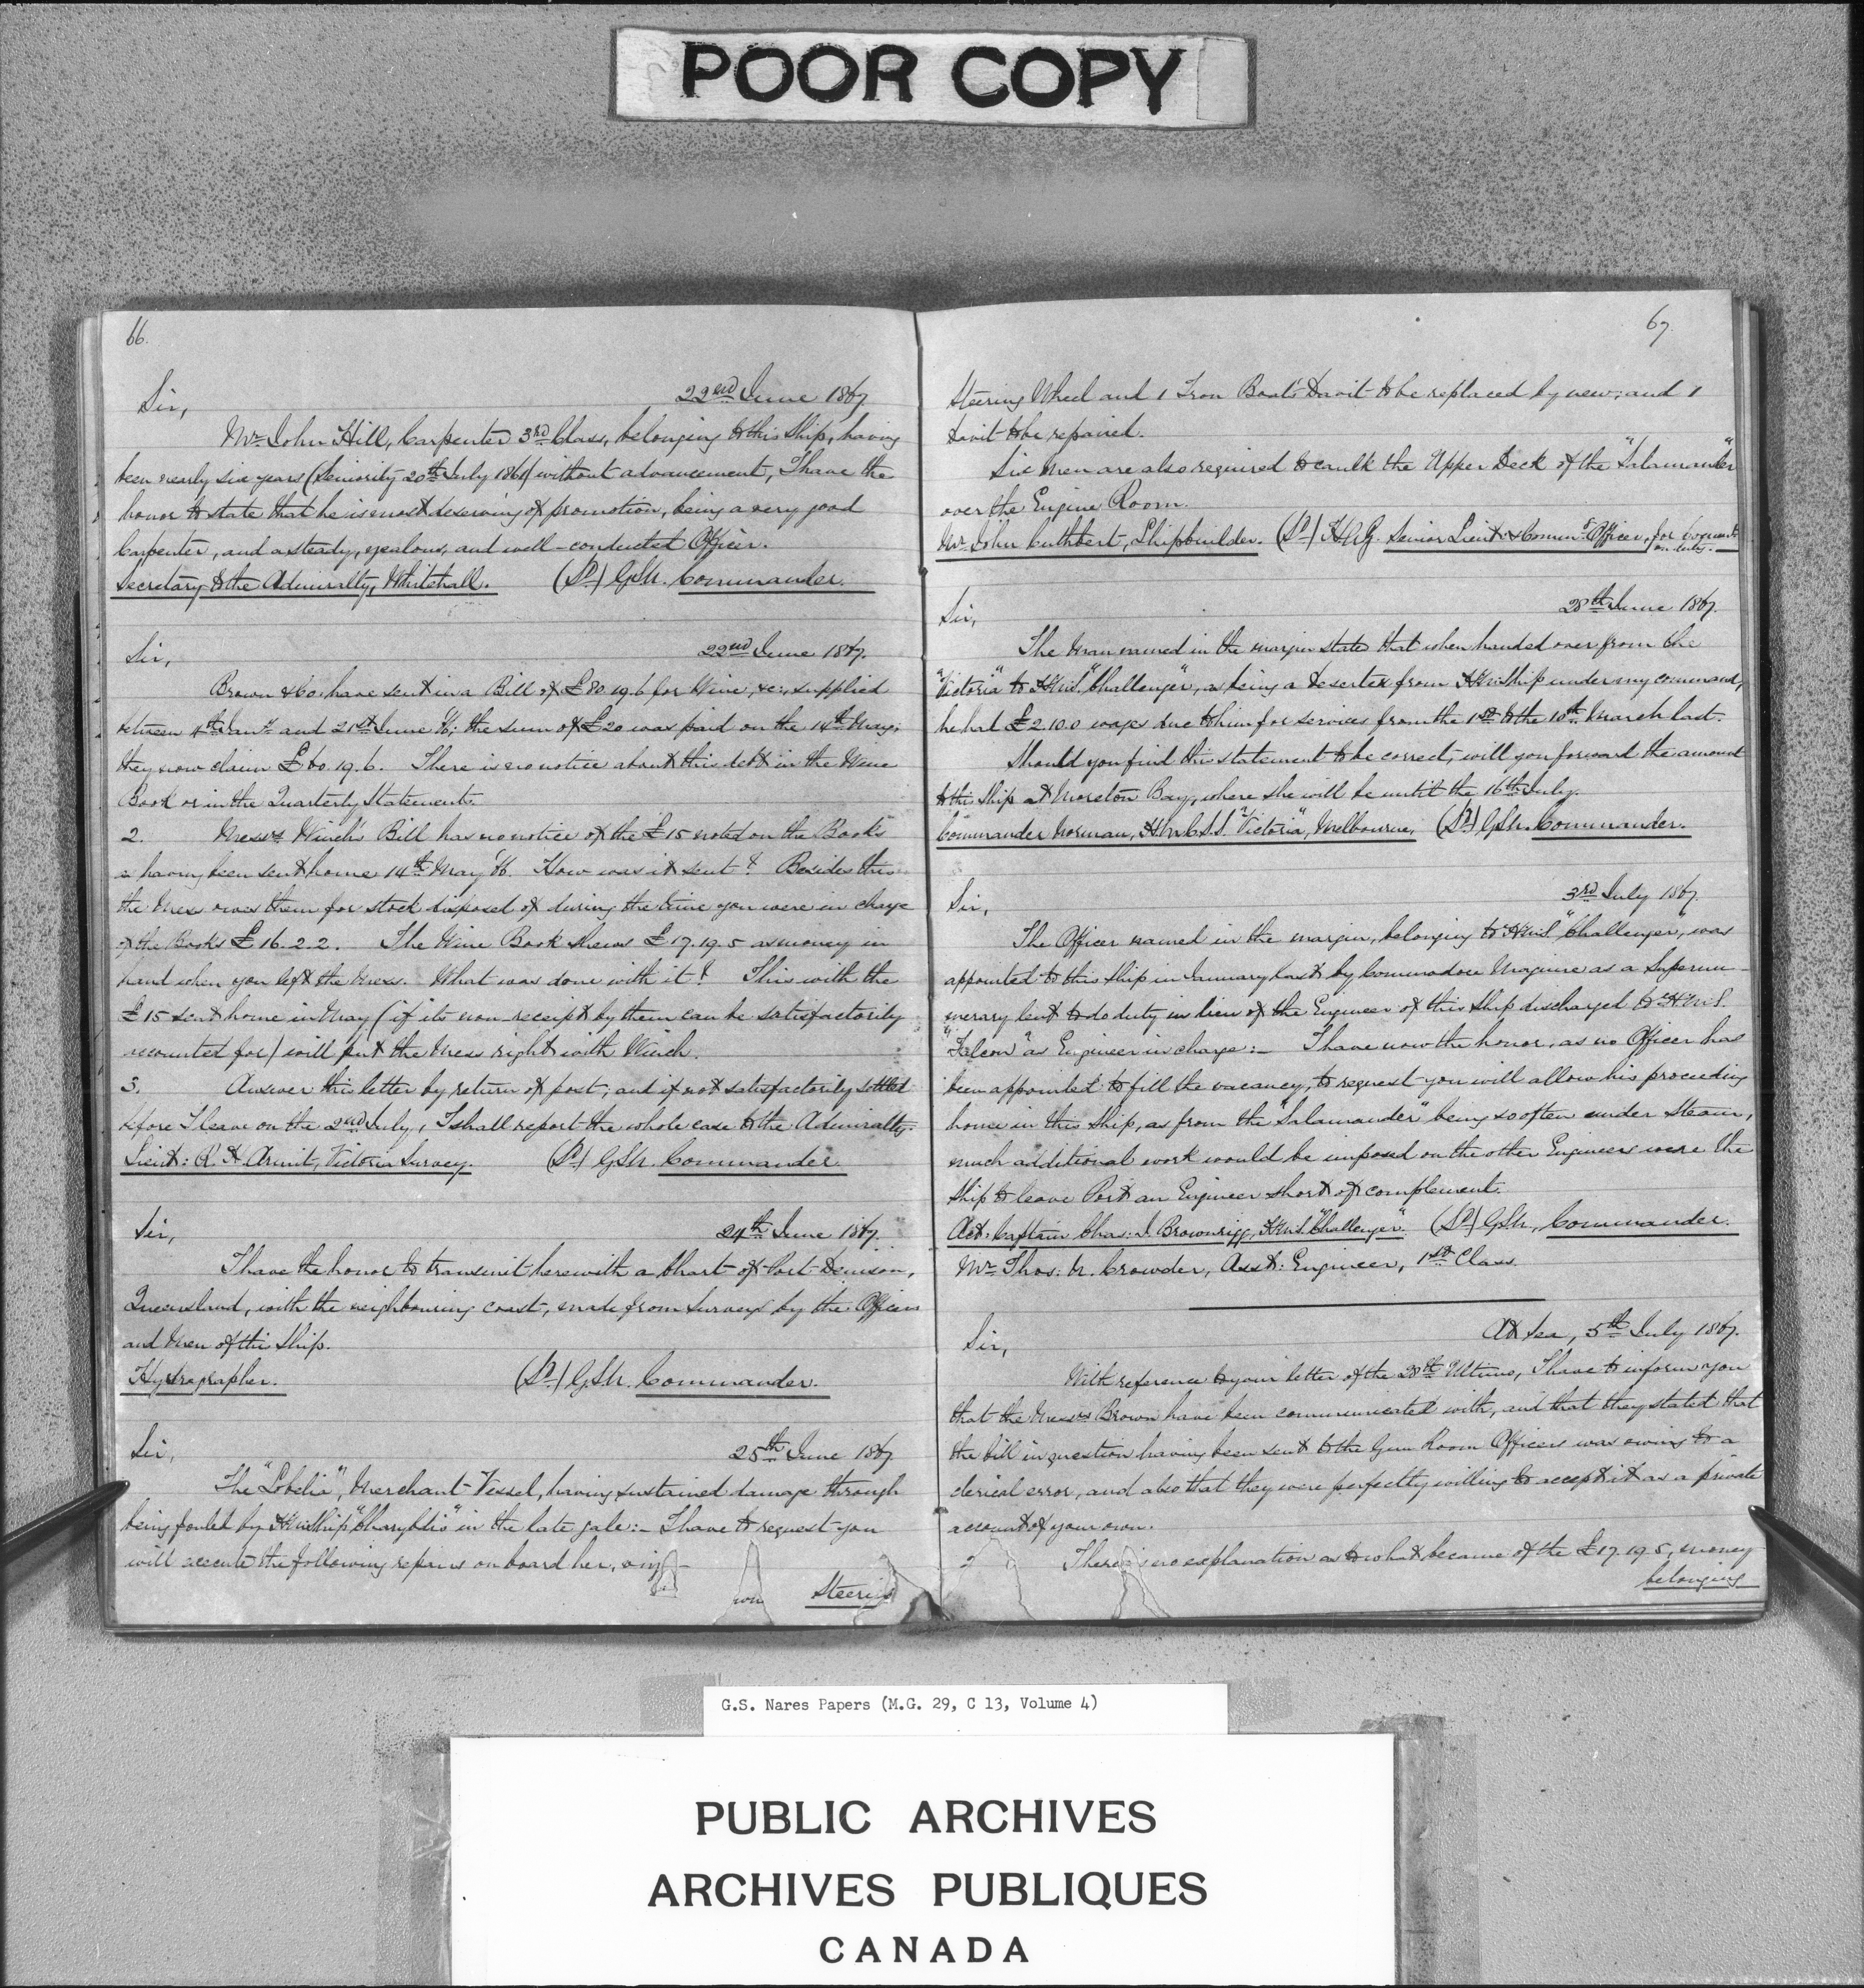 POOR COPY
66.
22nd June 1867
Sir,
Mr. John Hill, Carpenter 3rd Class, belonging to this Ship, having
been nearly six years (Seniority 20th July 1861) without advancement, I have the
honor to state that he is most deserving of promotion, being a very good
Carpenter, and a steady, zealous, and well-conducted Officer.
Secretary to the Admiralty, Whitehall. (Sd) GSN. Commander.
22nd June 1867.
Sir,
Brown & Co: have sent in a Bill of £80.19.6 for Wine, &c:, supplied
between 4th Jany and 21st June 66; the sum of £20 was paid on the 14th May;
they now claim £60.19.6. There is no notice about this debt in the Wine
Book or in the Quarterly Statements.
2. Messrs Winch's Bill has no notice of the £15 noted on the Books
as having been sent home 14th May 66. How was it sent? Besides this
the Mess owes them for stock disposed of during the time you were in charge
of the Books £16.2.2. The Wine Book shews £17.19.5 as money in
hand when you left the Mess. What was done with it? This with the
£15 sent home in May (if its non receipt by them can be satisfactorily
accounted for) will put the Mess right with Winch.
3. Answer this letter by return of post; and if not satisfactorily settled
before I leave on the 2nd July, I shall report the whole case to the Admiralty.
Lieut: R. H Armit, Victoria Survey. (Sd) GSN. Commander.
24th June 1867.
Sir,
I have the honor to transmit herewith a Chart of Port Denison,
Queensland, with the neighbouring coast, made from Surveys by the Officers
and Men of this Ship.
Hydrographer. (Sd) GSN. Commander.
25th June 1867
Sir,
The "Lobelia", Merchant Vessel, having sustained damage through
being fouled by H.M. Ship "Charybdis" in the late gale:- I have to request you
will execute the following repairs on board her, viz -
Steering
67.
Steering Wheel and 1 Iron Boat's Davit to be replaced by new; and 1
Davit to be repaired.
Six Men are also required to caulk the Upper Deck of the "Salamander"
over the Engine Room.
Mr. John Cuthbert, Shipbuilder. (Sd) Senior Lieut & Comm'g Officer, for
on duty.
28th June 1867.
Sir,
The Man named in the margin states that when handed over from the
"Victoria" to H.M.S. "Challenger", as being a Deserter from H.M. Ship under my command,
he had £2.10.0 wages due to him for services from the 1st to the 10th March last.
Should you find this statement to be correct, will you forward the amount
to this Ship at Moreton Bay, where she will be until the 16th July.
Commander Norman, H.M.C.S.S. "Victoria", Melbourne, (Sd) GSN. Commander.
3rd July 1867.
Sir,
The Officer named in the margin, belonging to H.M.S. "Challenger, was
appointed to this Ship in January last by Commodore Maguire as a Supernu-
merary lent to do duty in lieu of the Engineer of this Ship discharged to "H.M.S.
"Falcon" as Engineer in charge:- I have now the honor, as no Officer has
been appointed to fill the vacancy, to request you will allow his proceeding
home in this Ship, as from the "Salamander" being so often under Steam,
much additional work would be imposed on the other Engineers were the
Ship to leave Port an Engineer short of complement.
Act: Captain Chas: J. Brownrigg, H.M.S. "Challenger". (Sd) GSN, Commander.
Mr. Thos: N. Crowder, Asst: Engineer, 1st Class.
At Sea, 5th July 1867.
Sir,
With reference to your letter of the 28th Ultimo, I have to inform you
that the Messrs Brown have been communicated with, and that they stated that
the bill in question having been sent to the Gun Room Officers was owing to a
clerical error, and also that they were perfectly willing to accept it as a private
account of your own.
2 There is no explanation as to what became of the £17.19.5, money
belonging
G.S. Nares Papers (M.G. 29, C 13, Volume 4)
PUBLIC ARCHIVES
ARCHIVES PUBLIQUES
CANADA